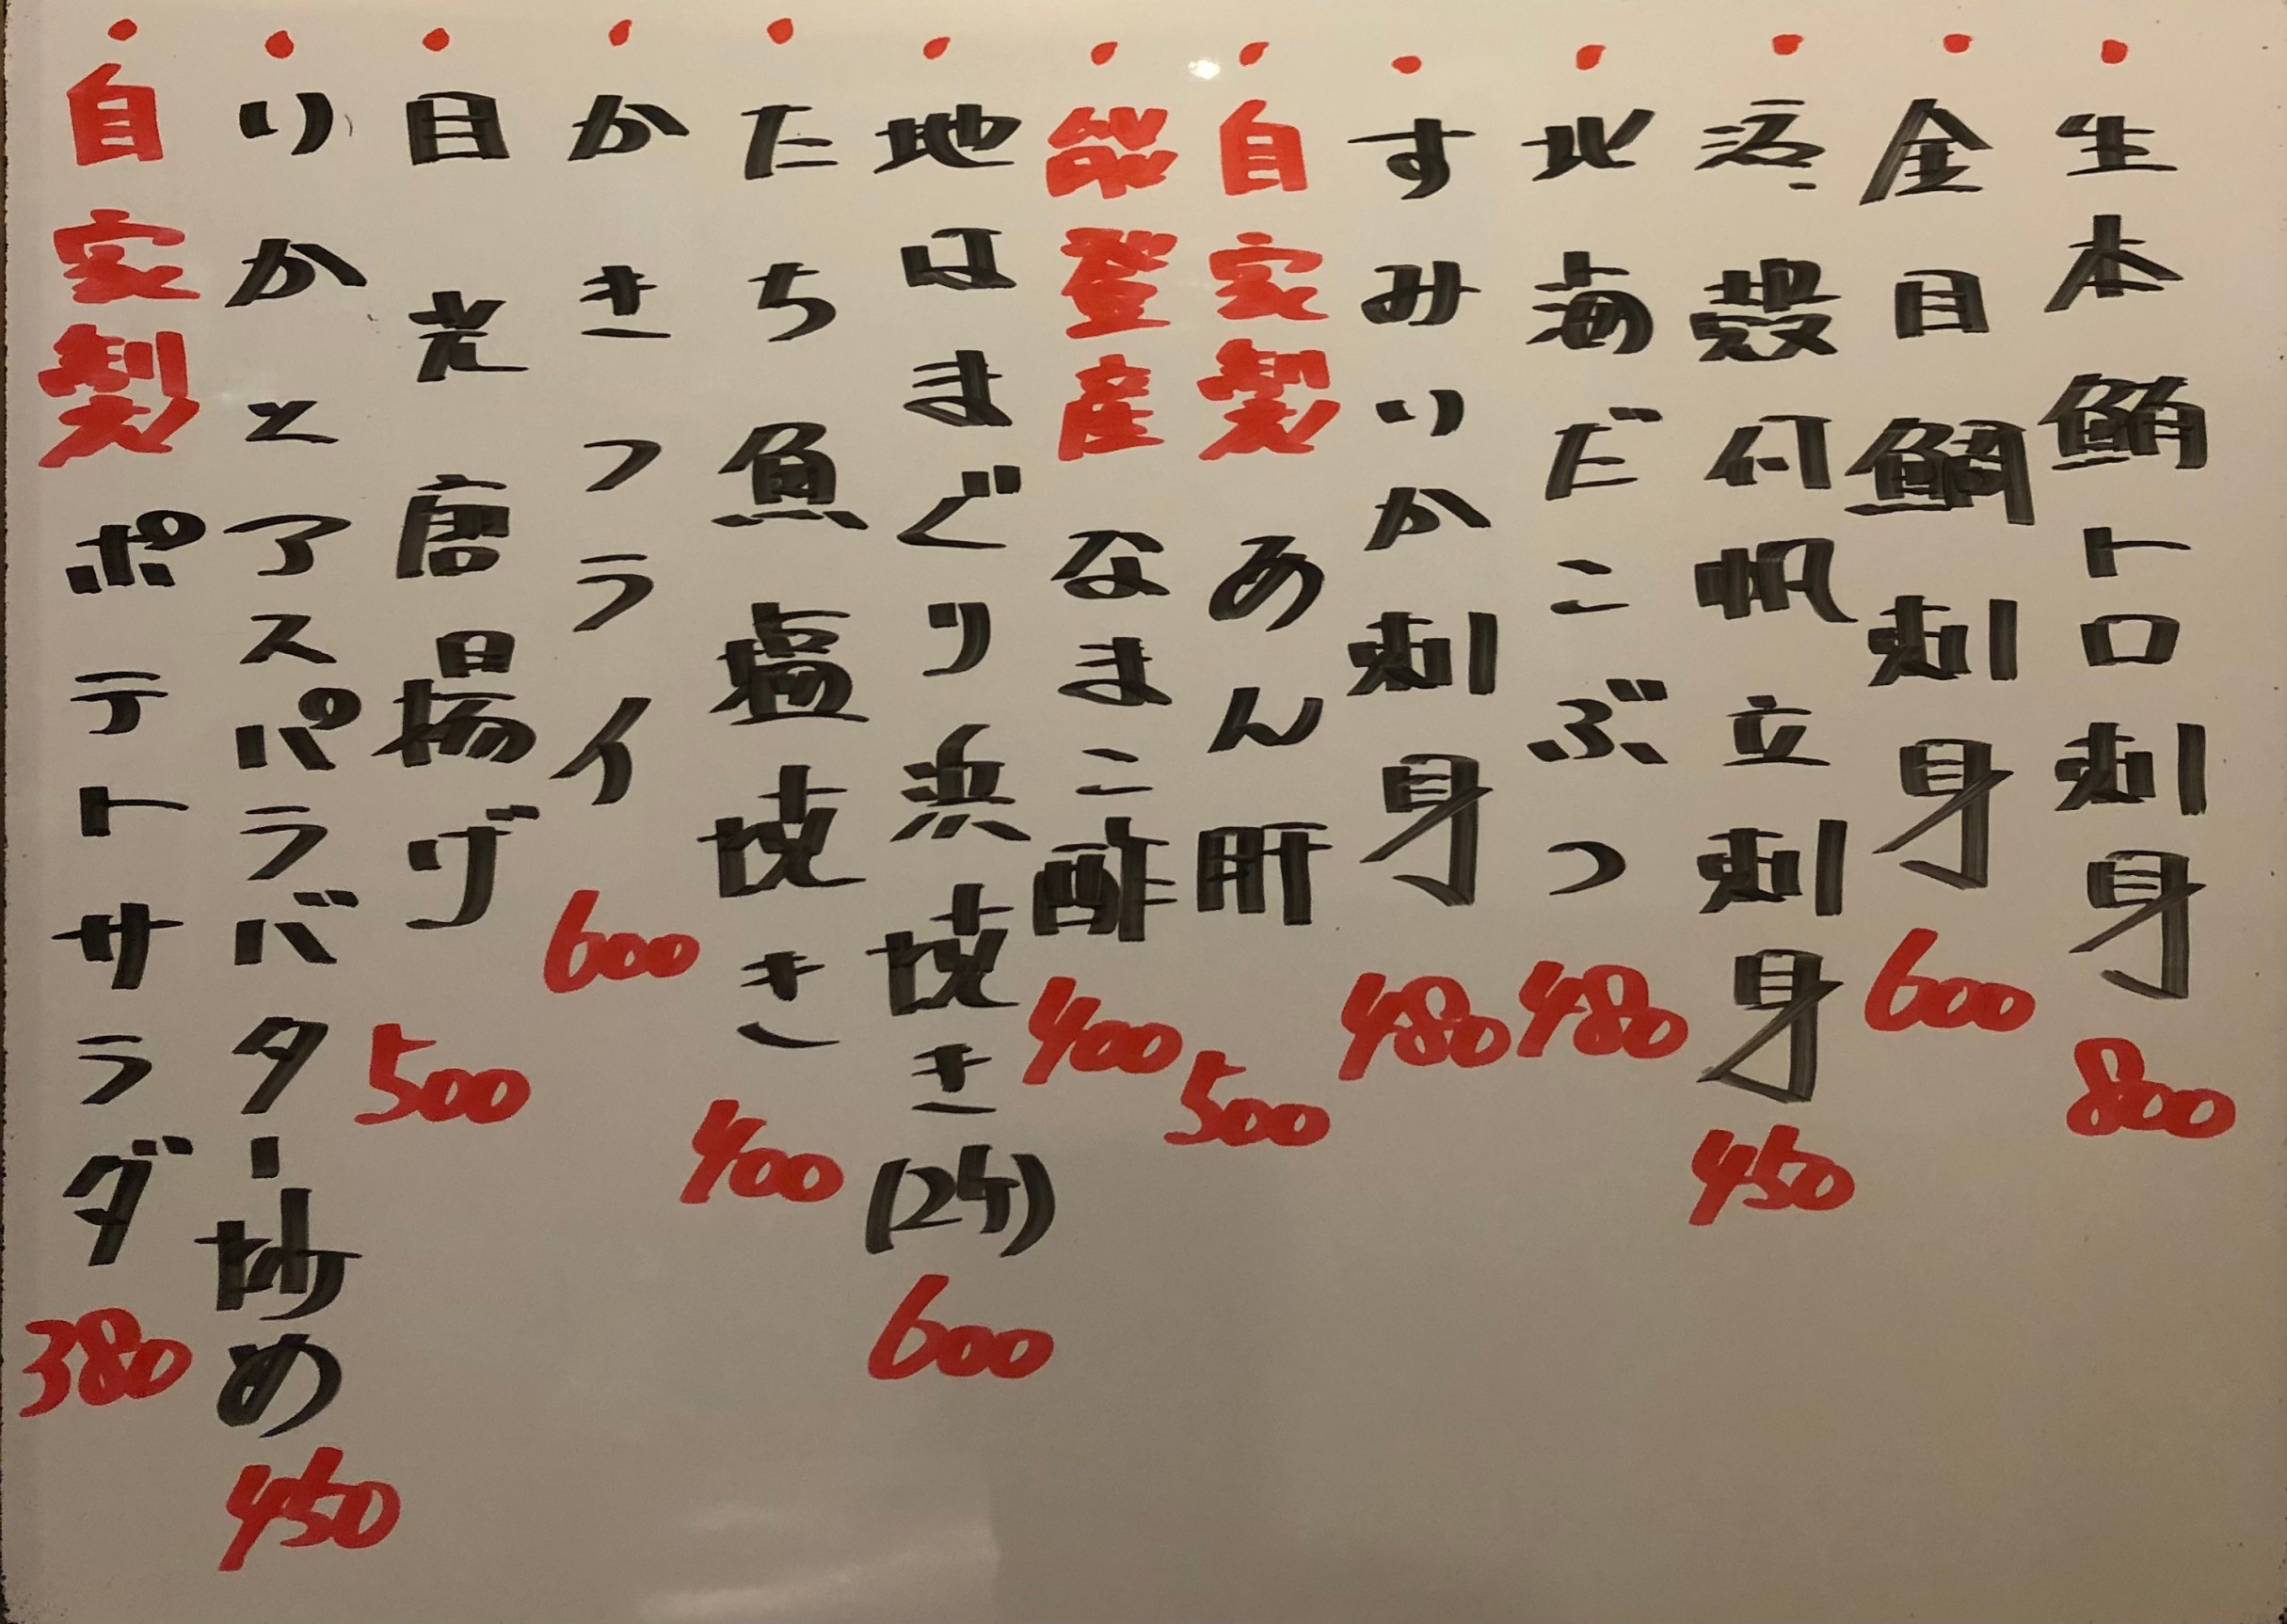 ・生本鮪トロ刺身 800
・金目鯛刺身 600
・活殻付帆立刺身 450
・北海だこぶつ 480
・すみいか刺身 480
・自家製 あん肝 500
・能登産 なまこ酢 400
・地はまぐり浜焼き(2ケ) 600
・たちら魚塩焼き 400
・かきフライ 600
・目光唐揚げ 500
・いかとアスパラバター炒め 450
・自家製 ポテトサラダ 380